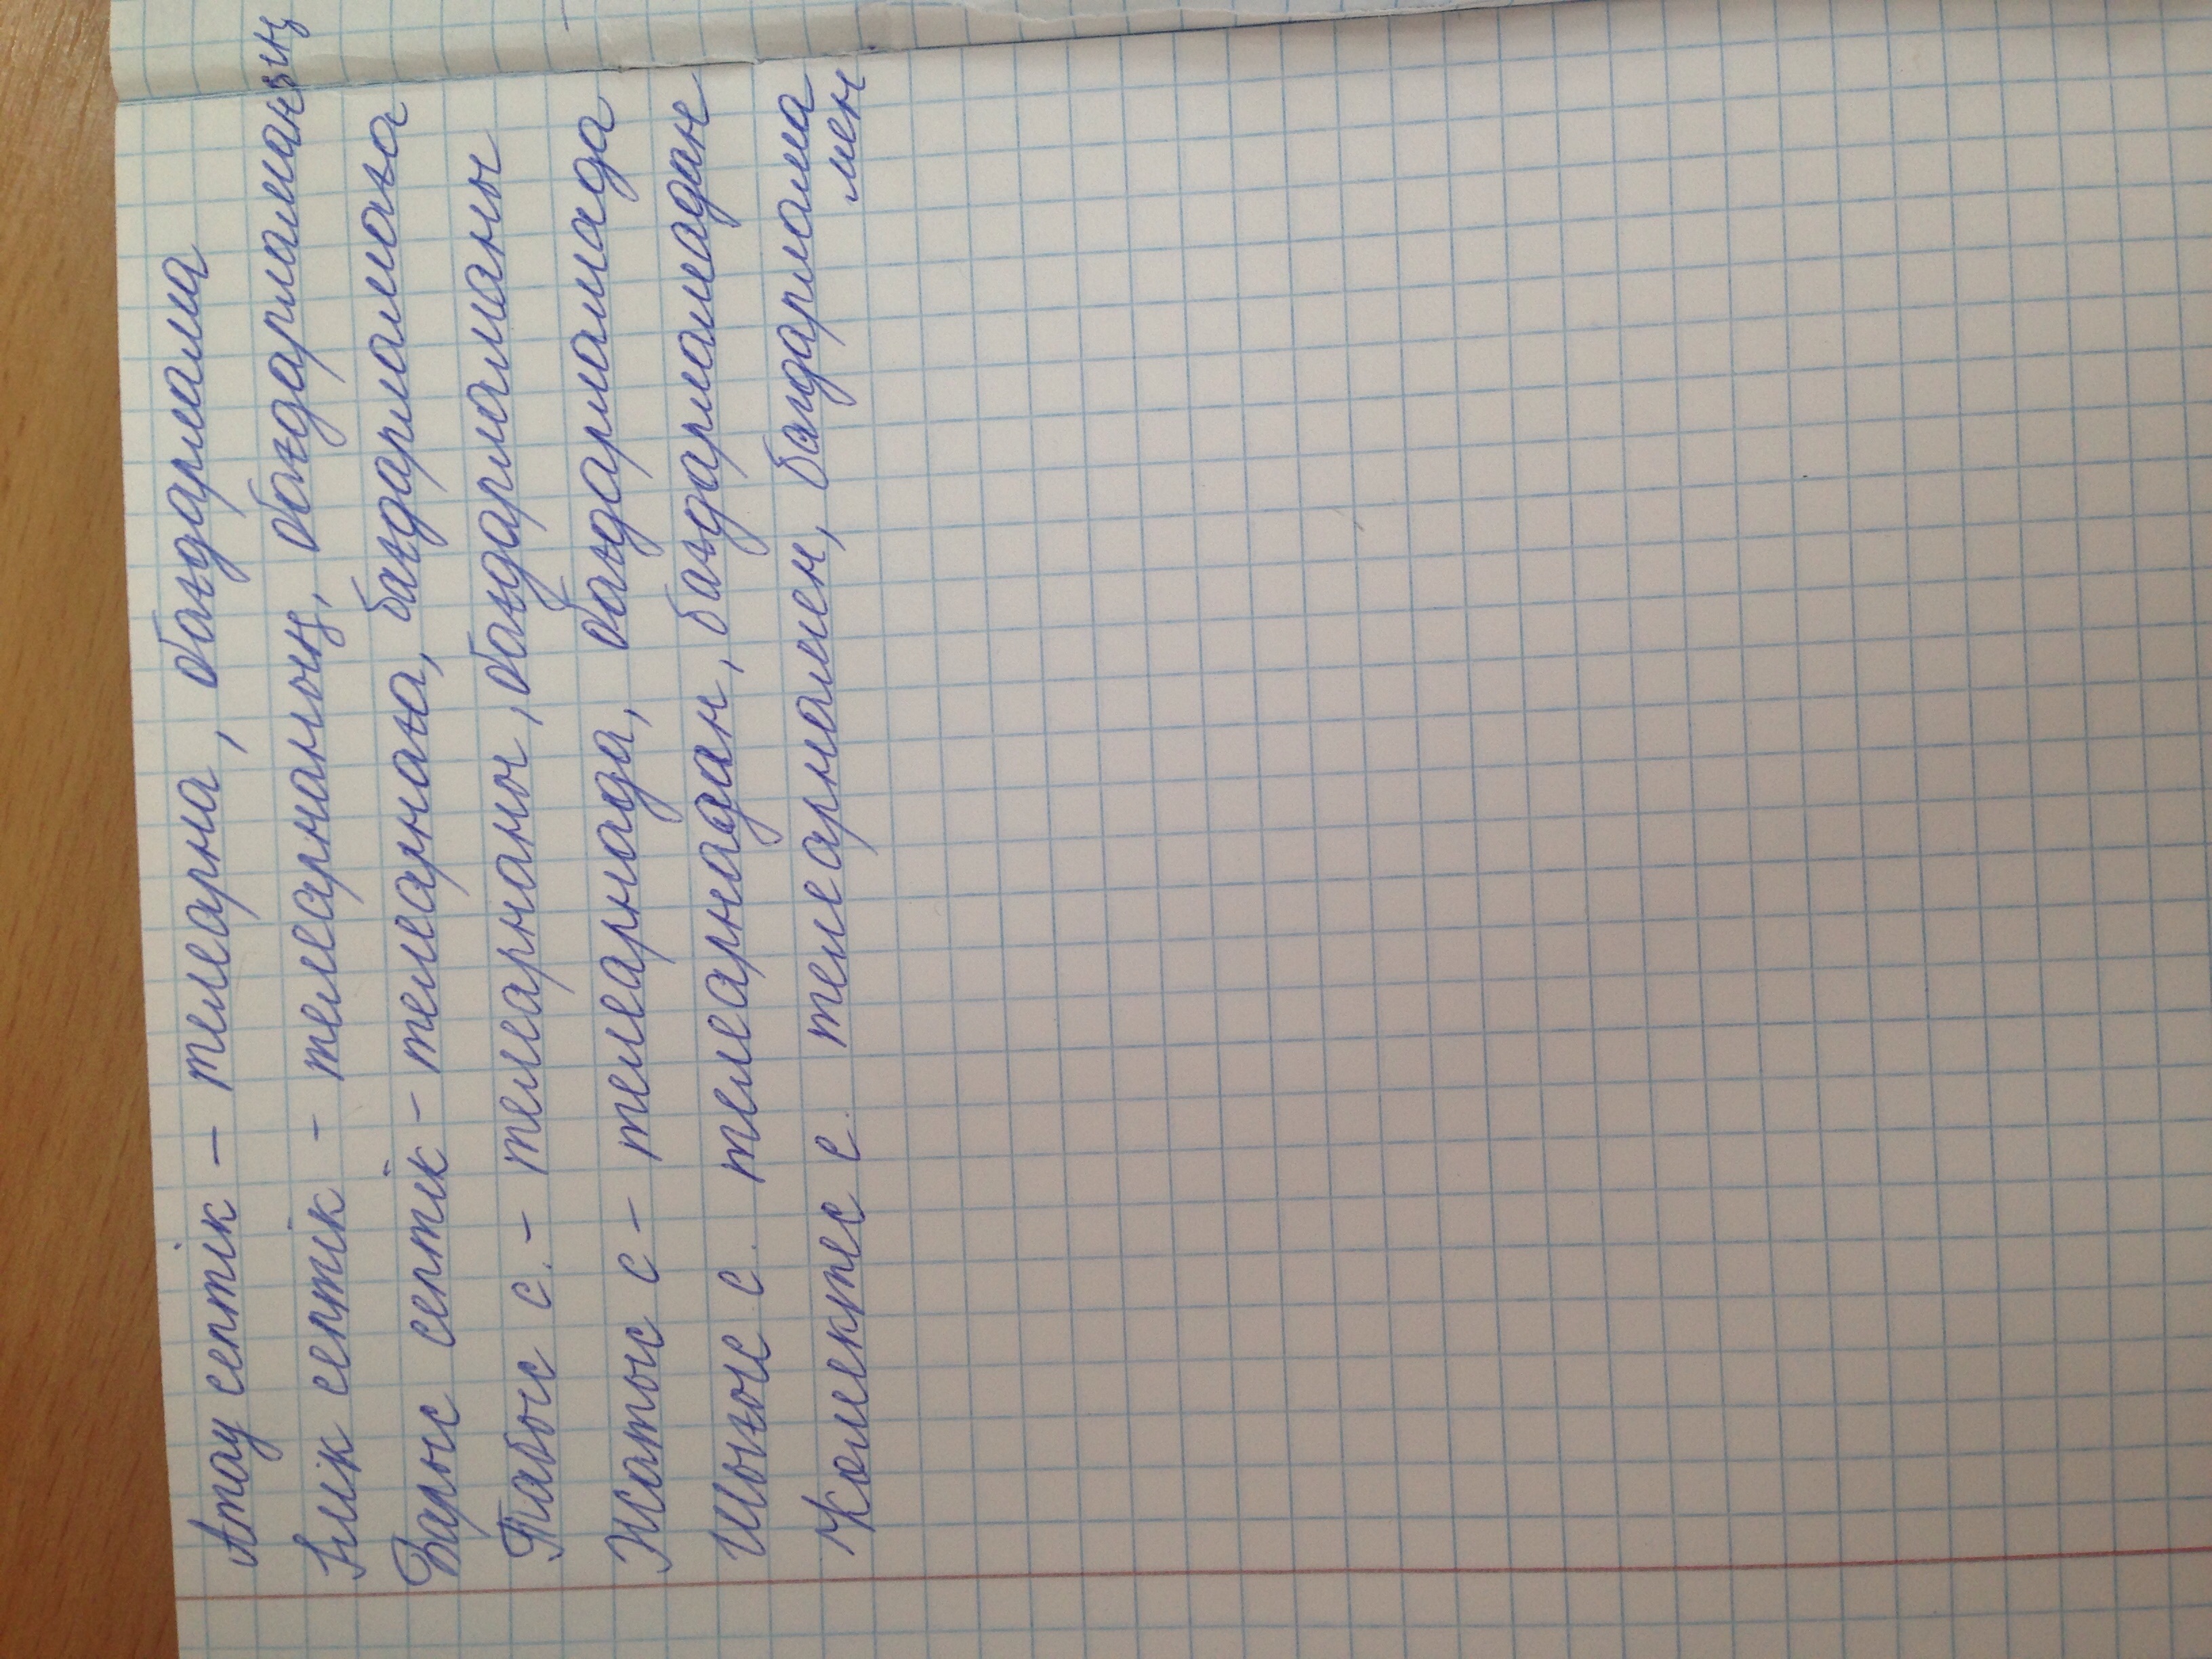 Атау септік – телеарна, бағдарлама
Ілік септік – телеарнаның, бағдарламаның
Барыс септік – телеарнаға, бағдарламаға
Табыс с. – телеарнаны, бағдарламаны
Жатыс с – телеарнада, бағдарламада
Шығыс с. телеарнадан, бағдарламадан
Көмектес с. телеарнамен, бағдарлама
мен